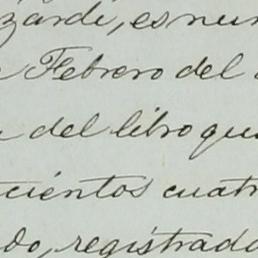 zardi, es nu
Febrero del
del libro que
cientos cuat
do, registrado